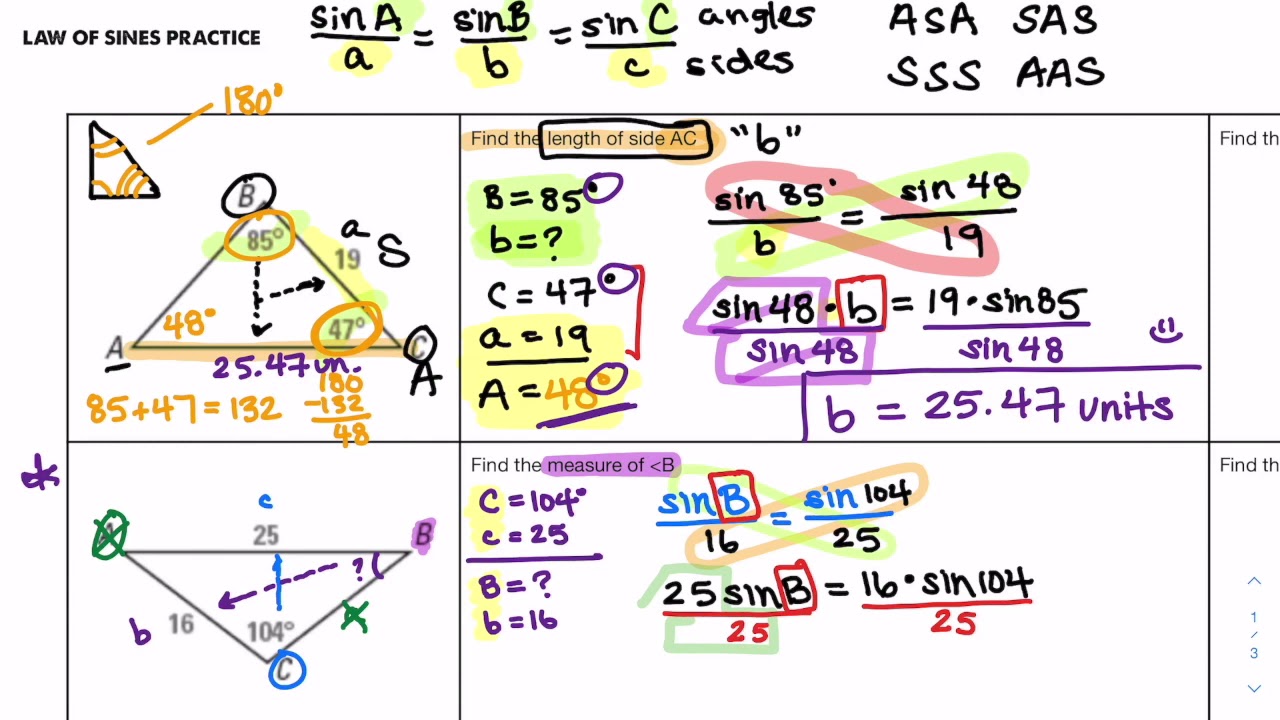 LAW OF SINES PRACTICE
sin A / a = sin B / b = sin C / c angles sides
ASA SAS
SSS AAS
180°
B
85°
a
19 S
48°
47°
A
C
25.47 un.
A
85+47=132
180
-132
48
Find the length of side AC "b"
B = 85°
b = ?
C = 47°
a = 19
A = 48°
sin 85° / b = sin 48 / 19
sin 48 · b = 19 · sin 85
sin 48 sin 48
b = 25.47 units
Find th
*
c
25
A
B
?
16
b
104°
x
C
Find the measure of <B
C = 104°
c = 25
B = ?
b = 16
sin B / 16 = sin 104 / 25
25 sin B = 16 · sin 104
25 25
Find th
1
/
3